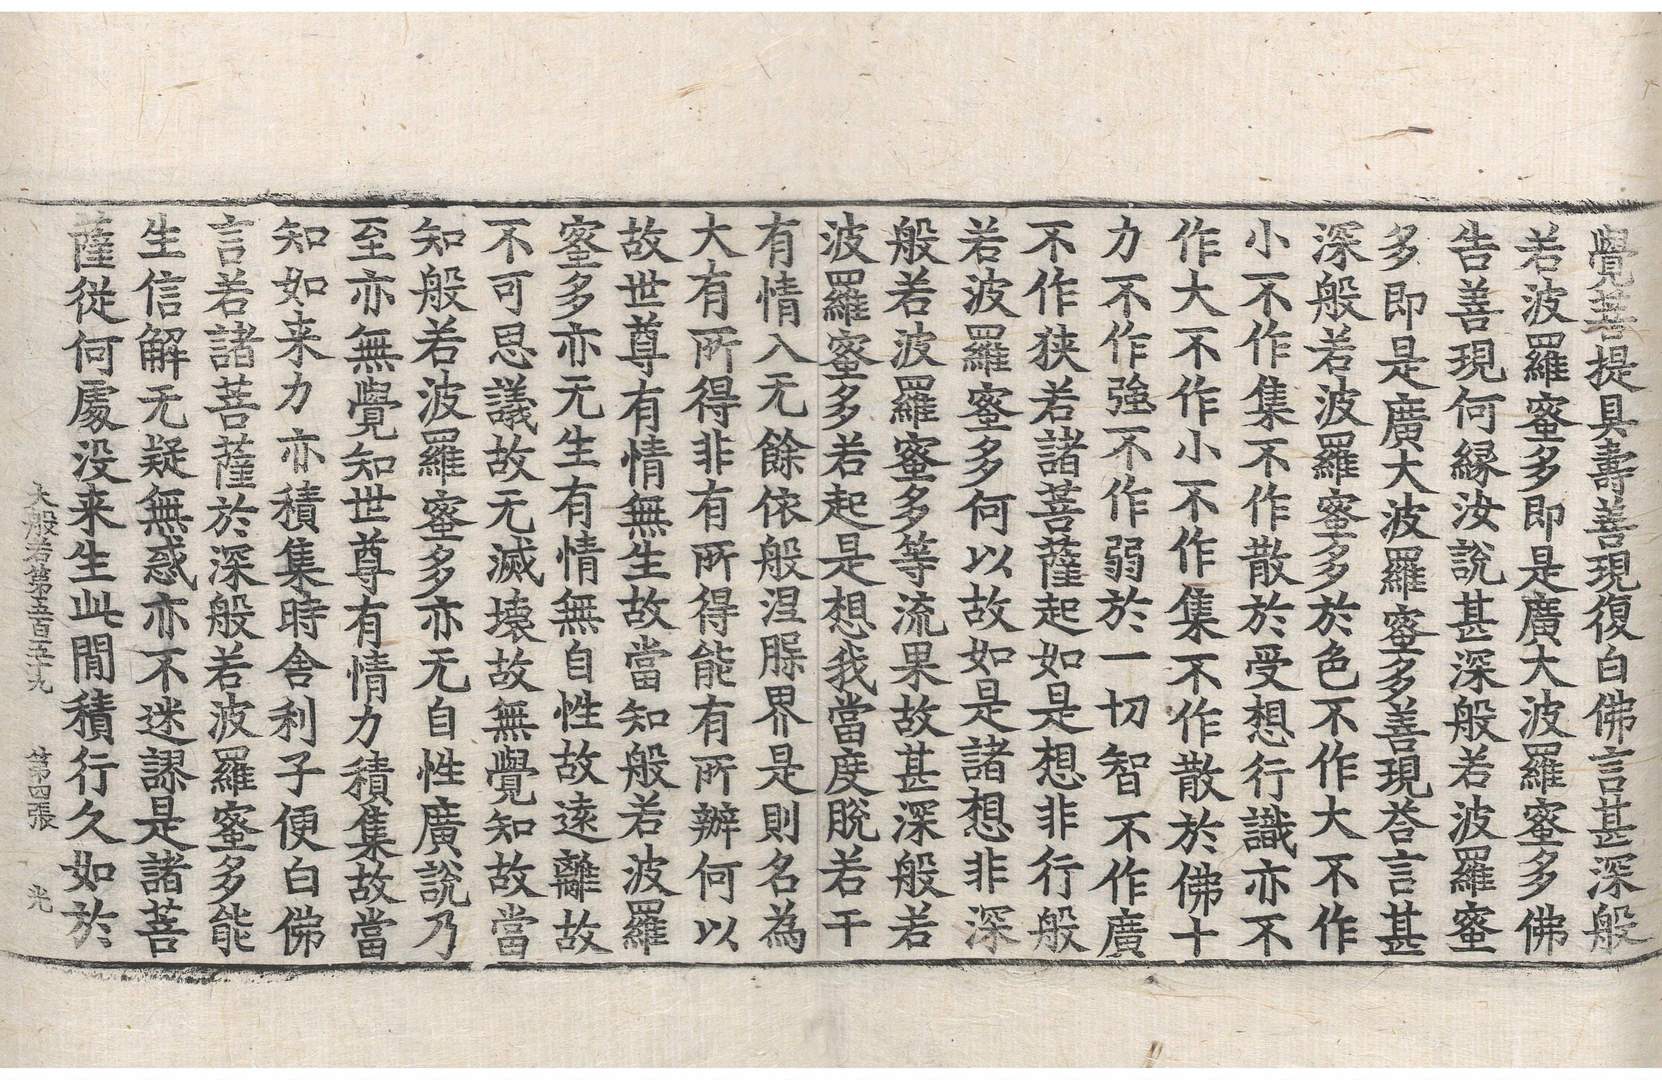 覺菩提具壽善現復白佛言甚深般
若波羅蜜多即是廣大波羅蜜多佛
告善現何緣汝說甚深般若波羅蜜
多即是廣大波羅蜜多善現荅言甚
深般若波羅蜜多於色不作大不作
小不作集不作散於受想行識亦不
作大不作小不作集不作散於佛十
力不作強不作弱於一切智不作廣
不作狹若諸菩薩起如是想非行般
若波羅蜜多何以故如是諸想非深
般若波羅蜜多等流果故甚深般若
波羅蜜多若起是想我當度脫若干
有情入无餘依般涅槃界是則名為
大有所得非有所得能有所辦何以
故世尊有情無生故當知般若波羅
蜜多亦无生有情無自性故遠離故
不可思議故无滅壞故無覺知故當
知般若波羅蜜多亦无自性廣說乃
至亦無覺知世尊有情力積集故當
知如来力亦積集時舍利子便白佛
言若諸菩薩於深般若波羅蜜多能
生信解无疑無惑亦不迷謬是諸菩
薩從何處沒来生此間積行久如於
大般若第五百五十九　第四張　光